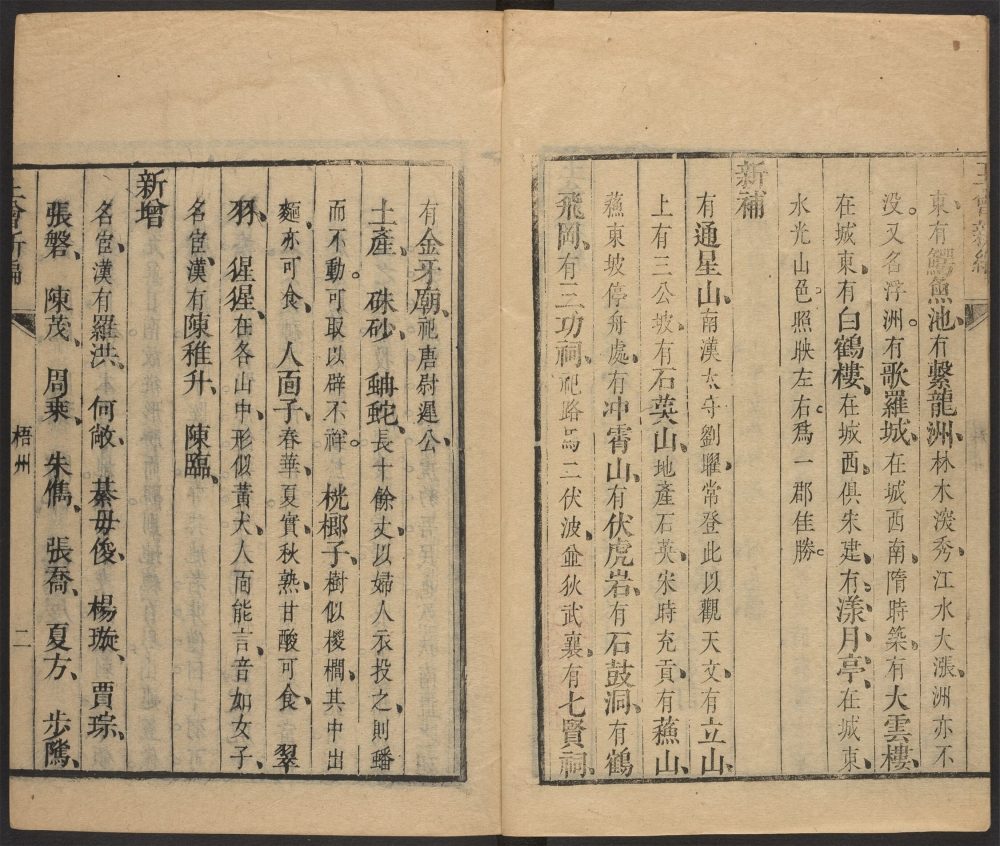 東有鱷魚池、有繫龍洲、林木深秀、江水大漲、洲亦不
没。又名浮洲。有歌羅城、在城西南、隋時築、有大雲樓、
在城東、有白鶴樓、在城西、俱朱建、有漾月亭、在城東、
水光山色。照映左右。爲一郡佳勝。
新補
有通星山、南漢太守劉曜、常登此以觀天文、有立山、
上有三公坡、有石英山、地產石英、宋時充貢、有蘓山、
蘓東坡停舟處、有冲霄山、有伏虎岩、有石鼓洞、有鶴
飛岡、有三功祠、祀路馬二伏波、並狄武襄、有七賢祠、
有金牙廟、祀唐尉遲公、
土產、 硃砂、 蚺蛇、長十餘丈、以婦人衣投之、則蟠
而不動。可取以辟不祥。 桄榔子、樹似椶櫚、其中出
麵、亦可食、 人面子、春華、夏實、秋熟、甘酸可食、 翠
羽、 猩猩、在各山中、形似黃犬、人面能言、音如女子、
名宦、漢有陳稚升、 陳臨、
新增
名宦、漢有羅洪、何敞、綦毋俊、 楊璇、 賈琮、
張磐、 陳茂、 周乘、 朱儁、 張喬、 夏方、 步隲、
王會新編 梧州 二